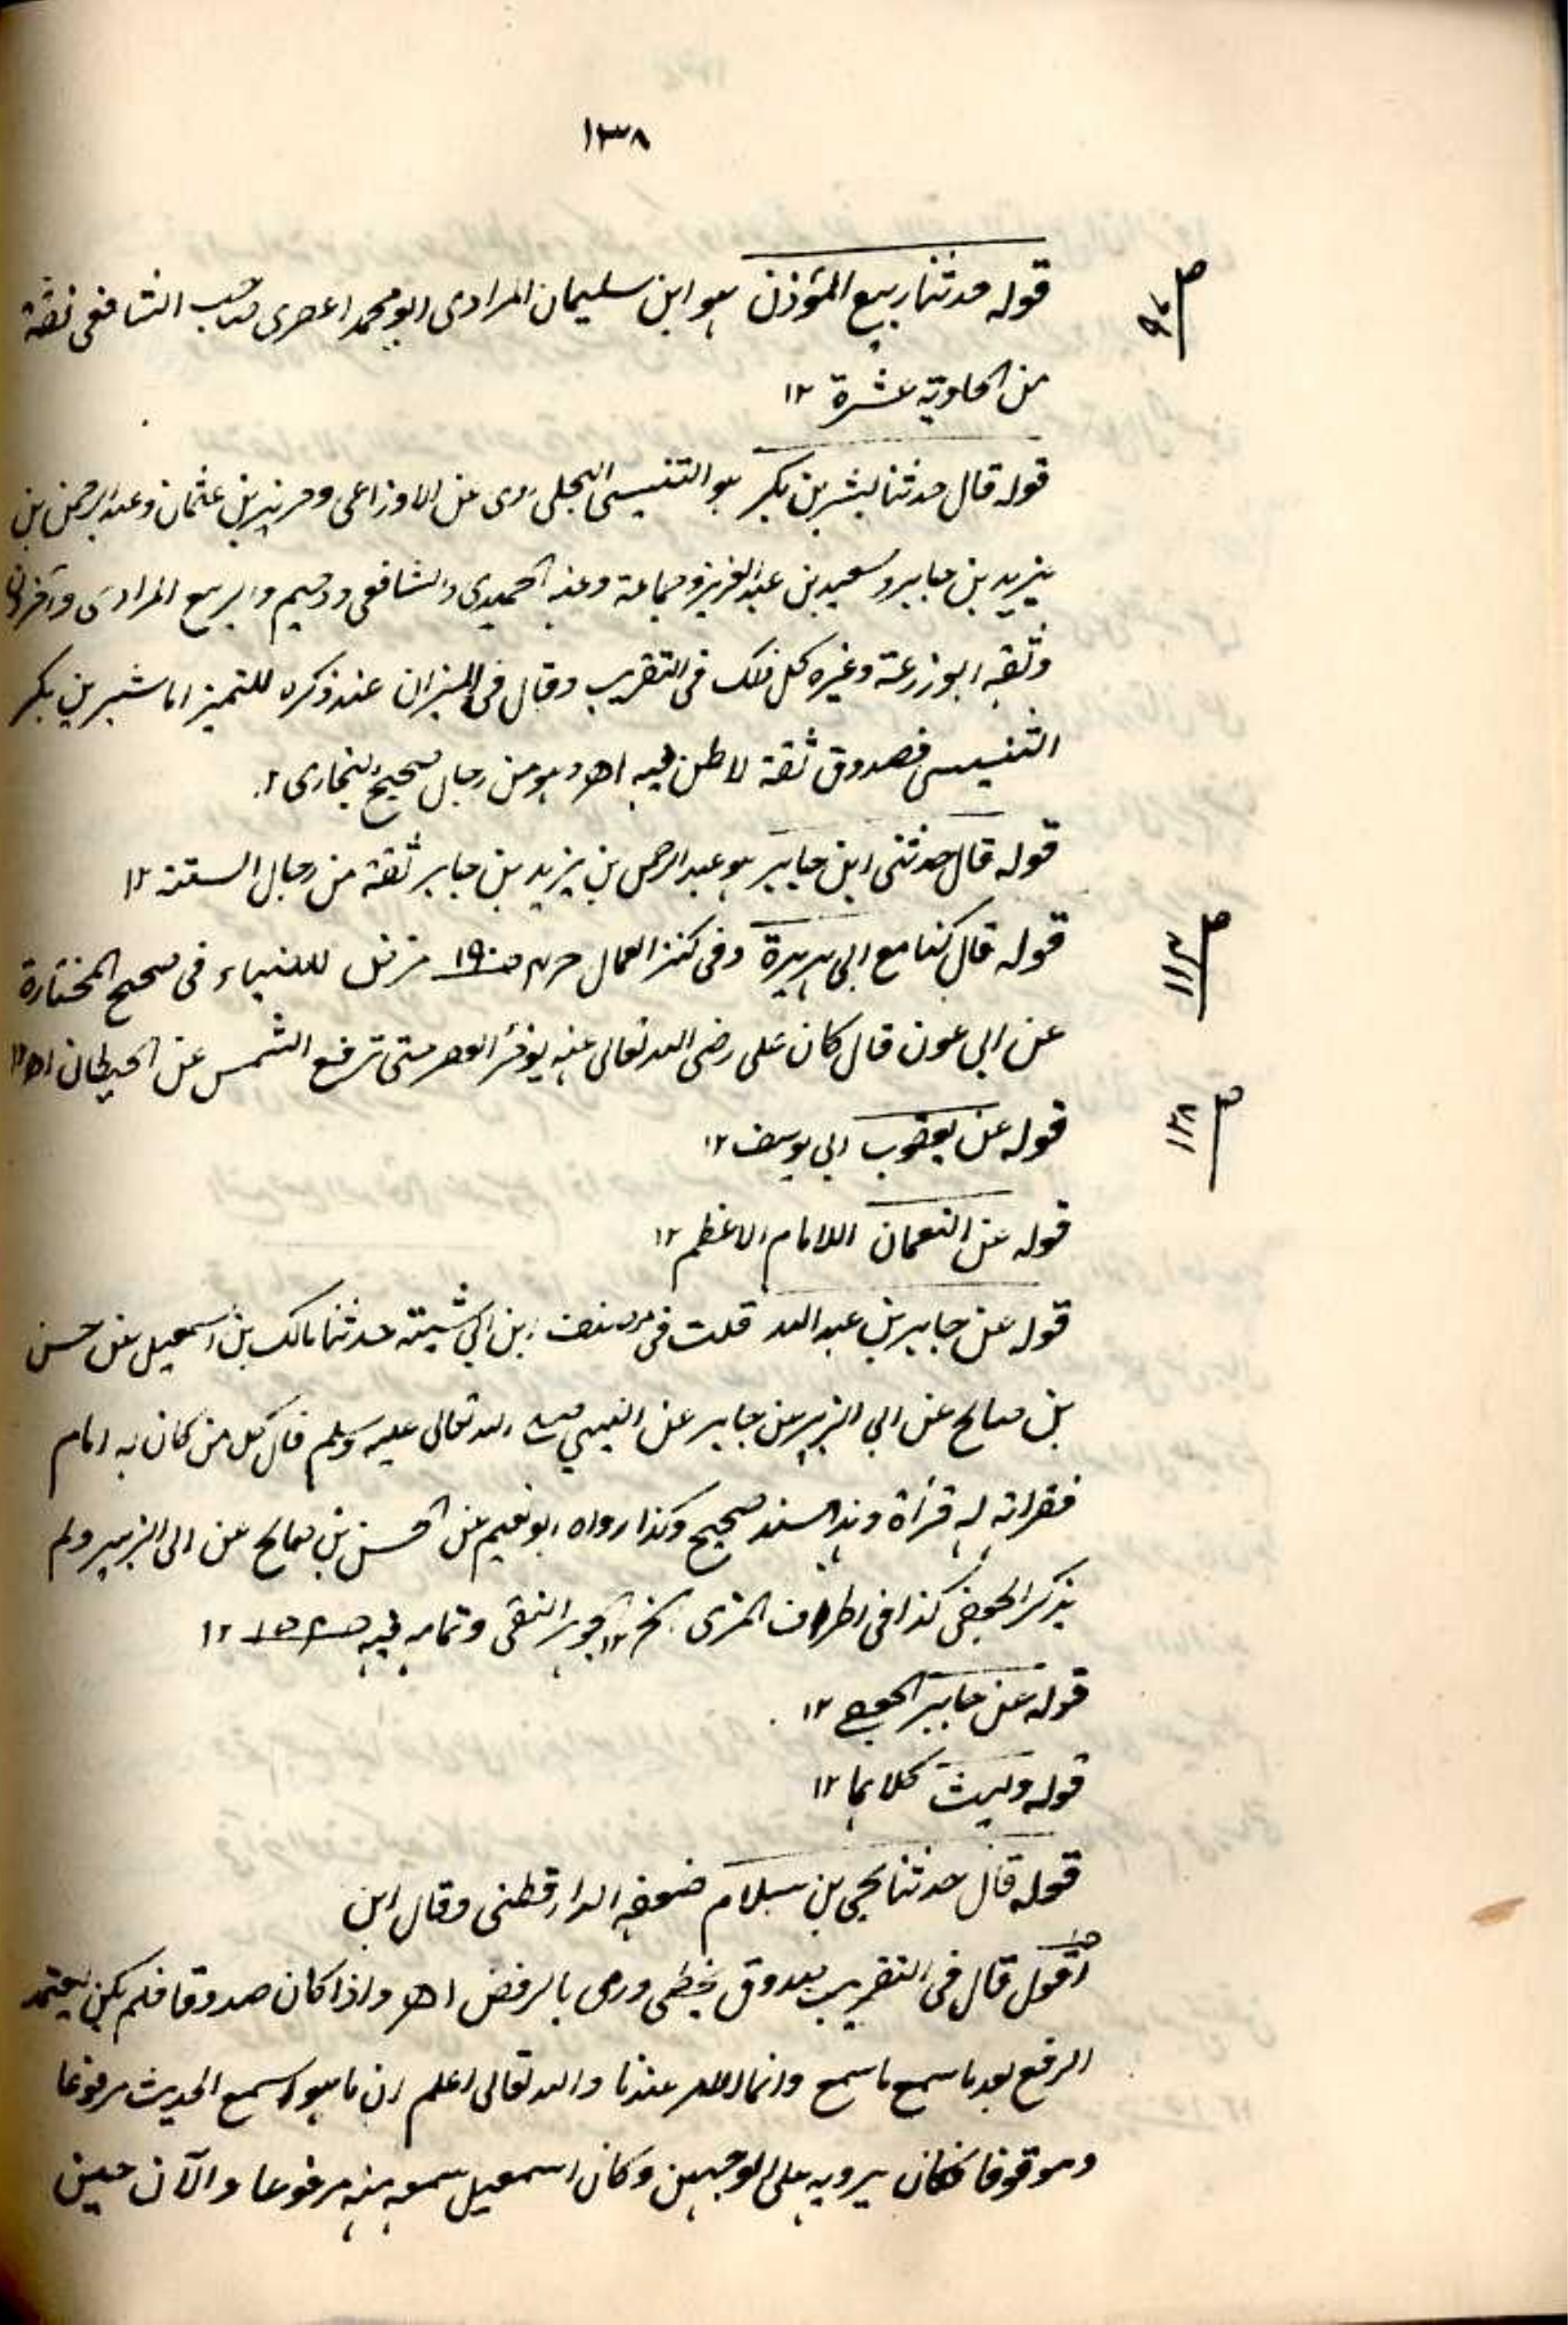 ١٣٨
ص ٩٠
قوله حدثنا ربيع المؤذن هو ابن سليمان المرادى ابو محمد المصرى صاحب الشافعى ثقة
من الحادية عشرة ١٢
قوله قال حدثنا بشر بن بكر هو التنيسى البجلى روى عن الاوزاعى وحريز بن عثمان وعبد الرحمن بن
يزيد بن جابر وسعيد بن عبد العزيز وجماعة وعنه الحميدى والشافعى ودحيم والربيع المرادى وآخرون
وثقه ابو زرعة وغيره كل ذلك فى التقريب وقال فى الميزان عند ذكره للتميز اما بشر بن بكر
التنيسى فصدوق ثقة لا طعن فيه اھ وهو من رجال صحيح البخارى ١٢
قوله قال حدثنى ابن جابر هو عبد الرحمن بن يزيد بن جابر ثقة من رجال الستة ١٢
ص ١١٣
قوله قال كنا مع ابى هريرة وفى كنز العمال ص ١٩٠ للضياء فى صحيح المختارة
عن ابى عون قال كان على رضى الله تعالى عنه يؤخر العصر حتى ترفع الشمس عن الحيطان اھ ١٢
ص ١٢٨
قوله عن يعقوب ابى يوسف ١٢
قوله عن النعمان الامام الاعظم ١٢
قوله عن جابر بن عبد الله قلت فى مصنف ابن ابى شيبة حدثنا مالك بن اسمعيل عن حسن
بن صالح عن ابى الزبير عن جابر عن النبى صلى الله تعالى عليه وسلم قال كل من كان له امام
فقراته له قرأة وهذا سند صحيح وكذا رواه ابو نعيم عن الحسن بن صالح عن ابى الزبير ولم
يذكر الجعفى كذا فى اطراف المزى الخ ١٢ الجوهر النقى وتمامه فيه ١٢
قوله عن جابر الجعفى ١٢
قوله وليث كلاهما ١٢
قوله قال حدثنا يحيى بن سلام ضعفه الدارقطنى وقال ابن
اقول قال فى التقريب صدوق يخطى ورمى بالرفض اھ واذا كان صدوقا فلم يكن ليعتمد
الرفع بعد ما سمع ما سمع وانما الظاهر عندنا والله تعالى اعلم ان سمع الحديث مرفوعا
وموقوفا فكان يرويه على الوجهين وكان اسمعيل سمعه منه مرفوعا والآن حين